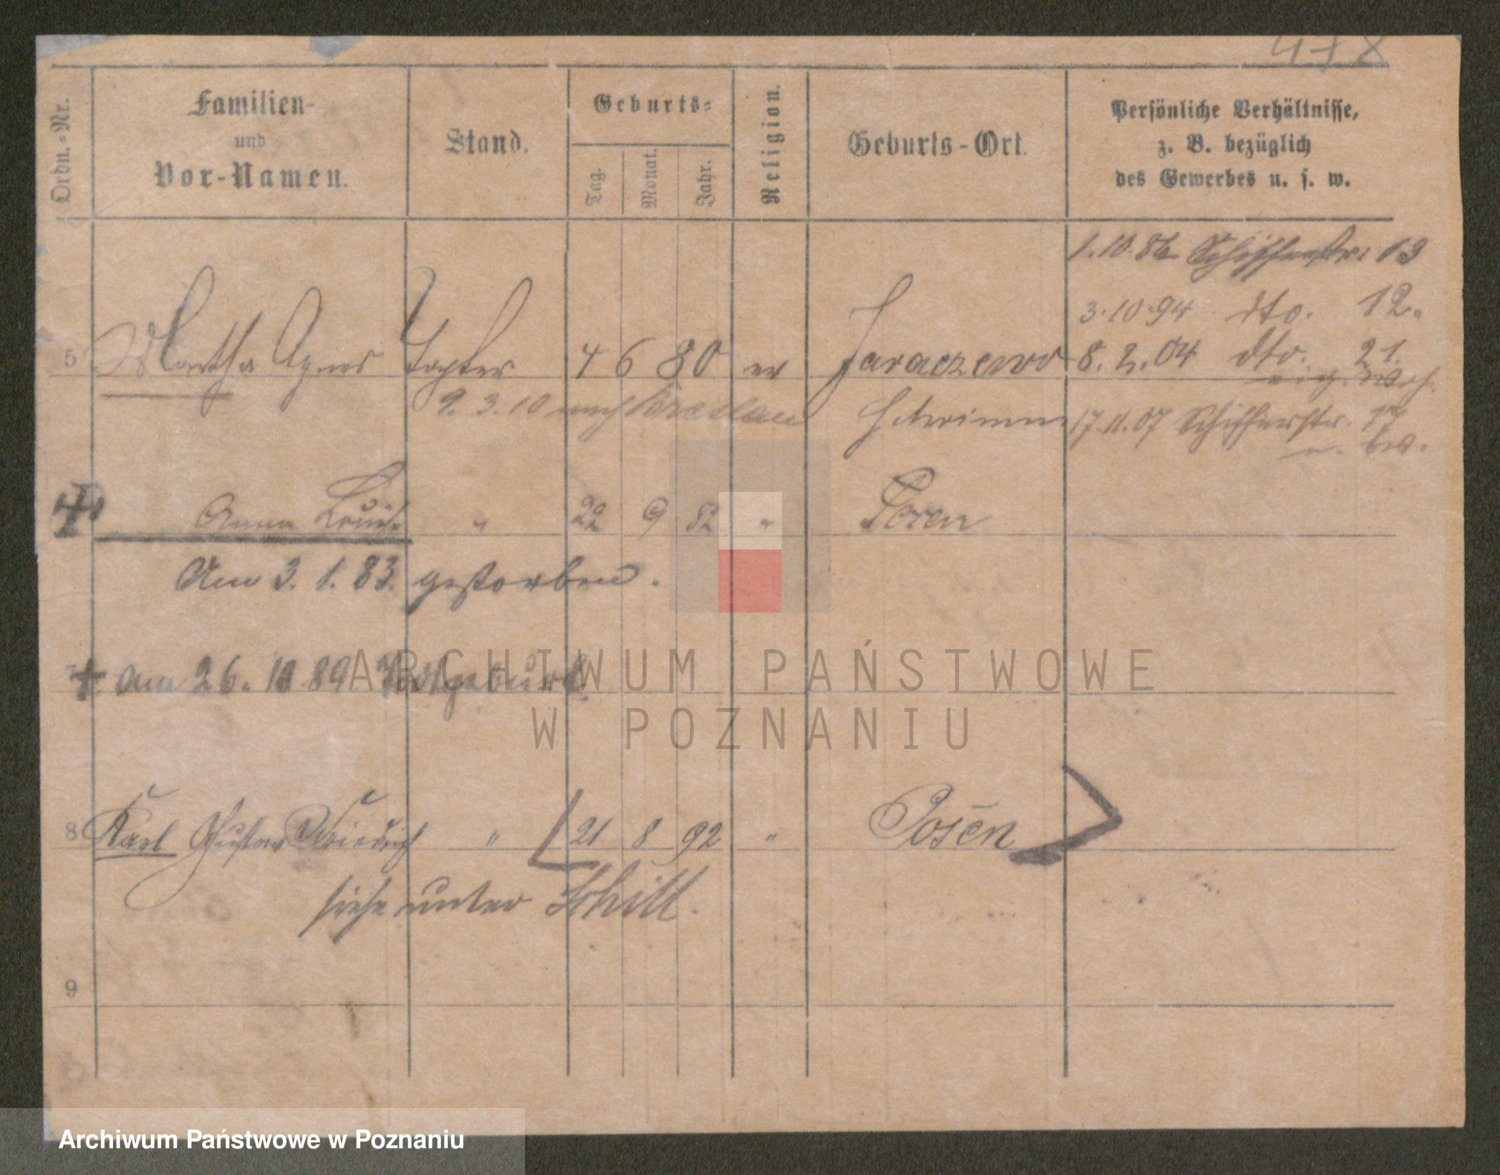 478
Ordn.-Nr.
Familien-
und
Vor-Namen.
Stand.
Geburts-
Tag.
Monat.
Jahr.
Religion.
Geburts-Ort.
Persönliche Verhältnisse,
z. B. bezüglich
des Gewerbes u. s. w.
1.10.86 Schifferstr. 13
3.10.94 dto. 12.
5 Martha Agnes Tochter 4 6 80 ev Jaraczewo 8.2.04 dto. 21.
9.3.10 nach Breslau Schrimm 17.11.07 Schifferstr. 17
Anna Louise " 22 9 82 " Posen
Am 3.1.83. gestorben.
7 am 26. 10 89 Todtgeburt.
8 Karl Gustav Friedrich " 21 8 92 " Posen
siehe unter Schill.
9
ARCHIWUM PAŃSTWOWE
W POZNANIU
Archiwum Państwowe w Poznaniu